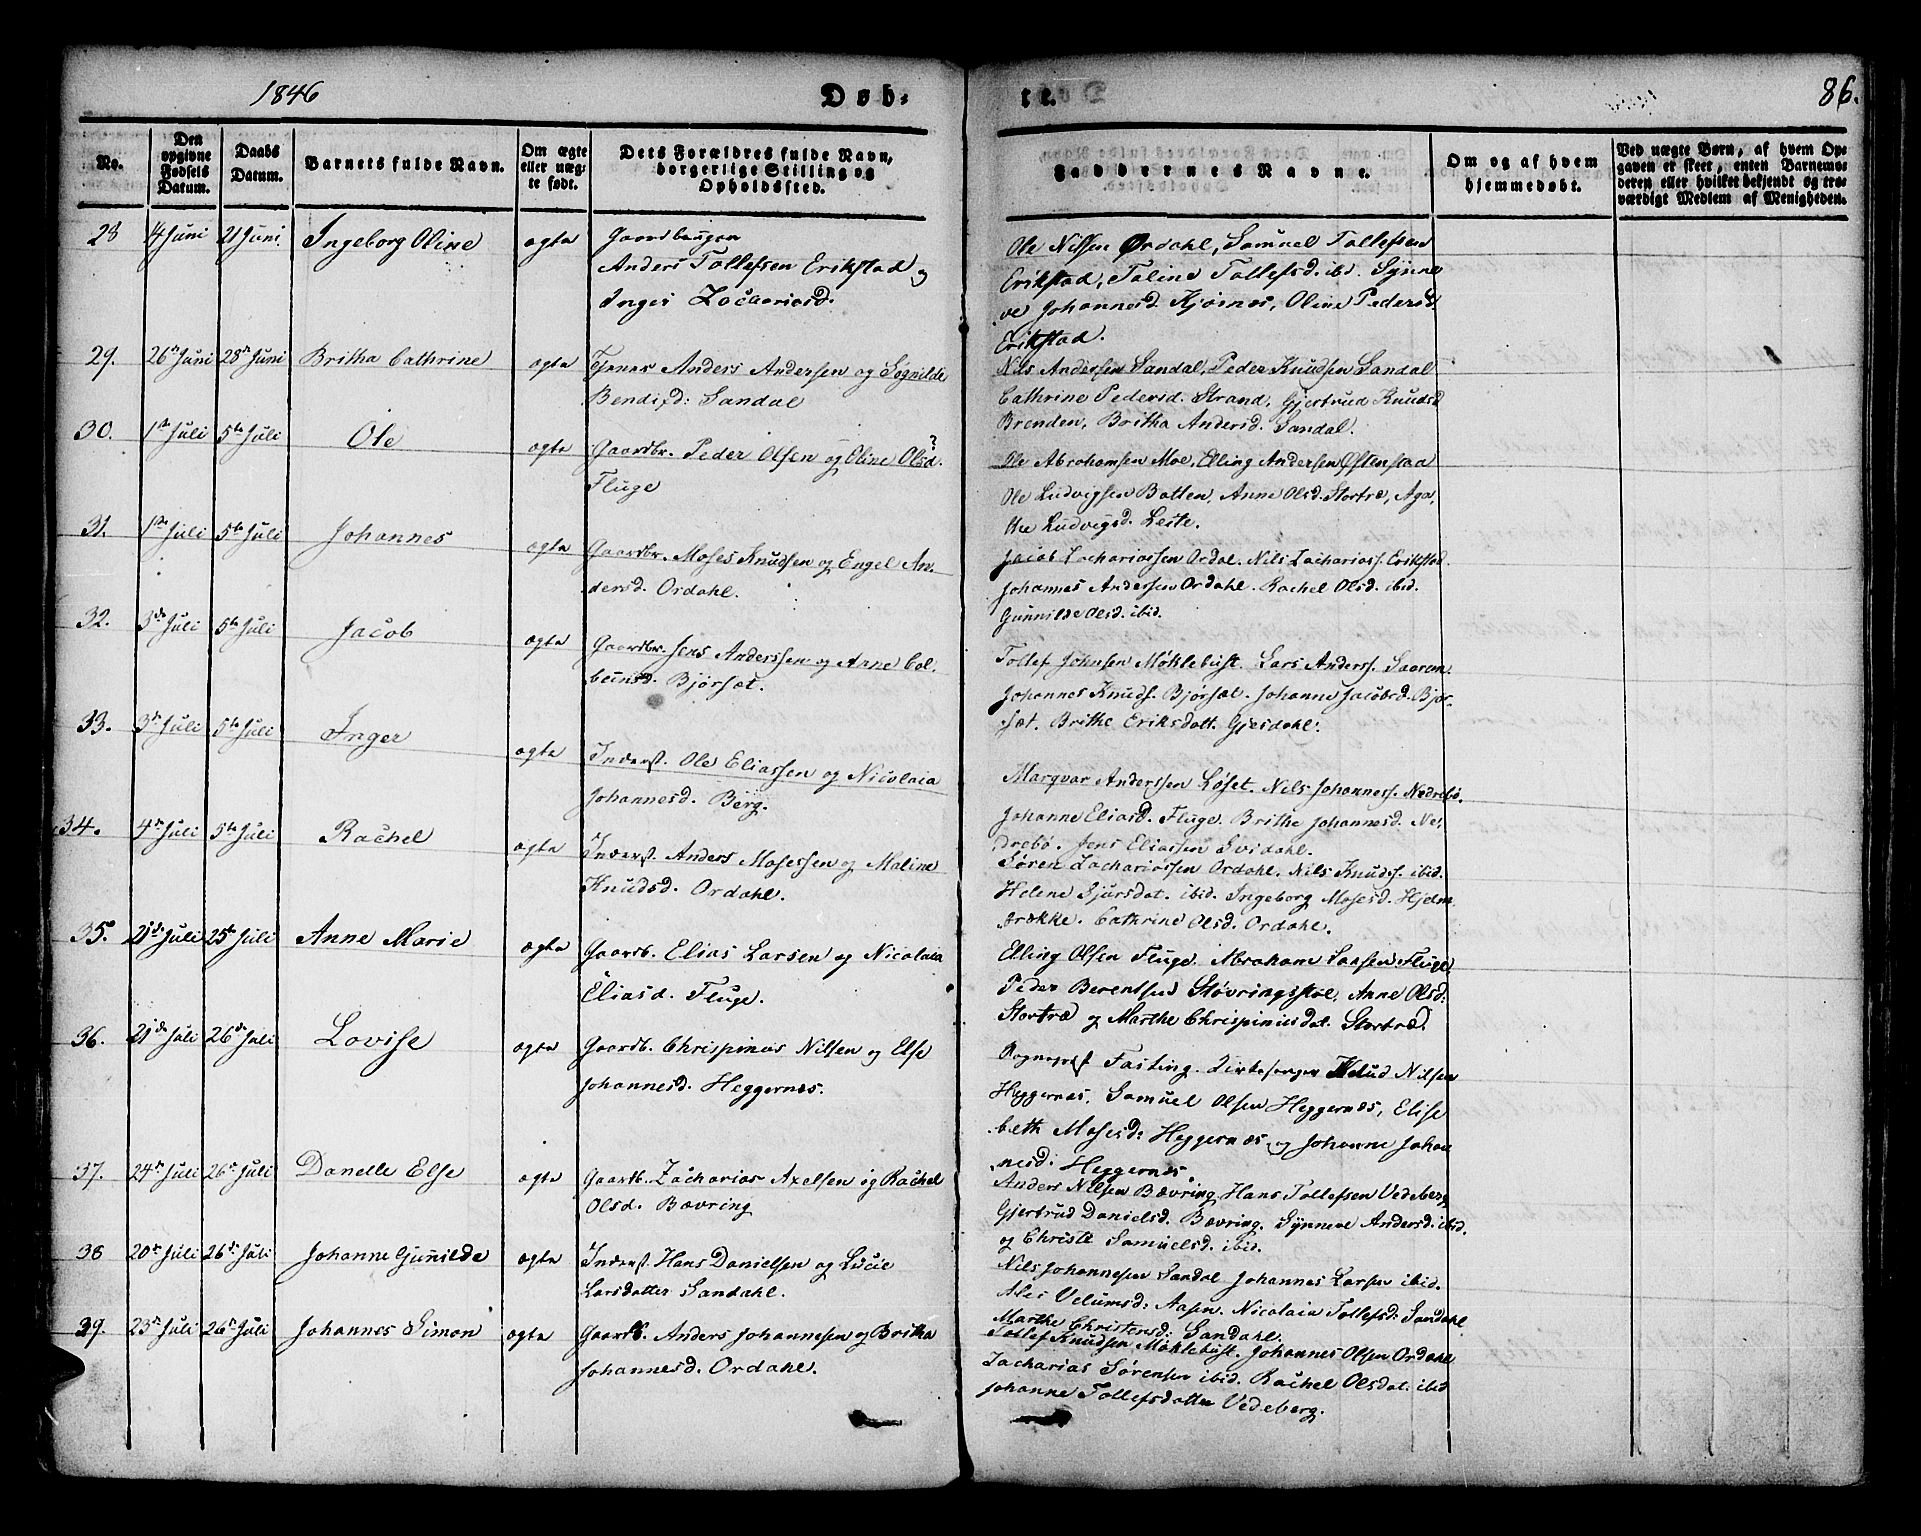 1846
Døb-
te.
86.
No.
Den opgivne Fødsels Datum.
Daabs Datum.
Barnets fulde Navn.
Om ægte eller uægte født.
Dets Forældres fulde Navn, borgerlige Stilling og Opholdssted.
Faddernes Navne.
Om og af hvem hjemmedøbt.
Ved uægte Børn, af hvem Op-
gaven er skeet, enten Barnemo-
deren eller hvilket bekjendt og tro-
værdigt Medlem af Menigheden.
28 4 Juni 21 Juni Ingeborg Oline ægte
Anders Tollefsen Erikstad og
Inger Zachariasd.
Ole Nilsen Ordahl, Samuel Tollefsen
Erikstad, Taline Tollefsd. ibd. Synne
ve Johannesd. Kjøsnæs, Oline Pedersd.
Erikstad.
29. 26de Juni 28de Juni Britha Cathrine ægte
Tjener Anders Andersen og Sognilde
Bendixd: Sandal
Nils Andersen Sandal, Peder Knudsen Sandal
Cathrine Pedersd. Strand, Gjertrud Knudsd
Brenden, Britha Andersd. Sandal.
30. 1ste Juli 5te Juli Ole ægte
Gaardbr. Peder Olsen og Oline Olsd.?
Fluge
Ole Abrahamsen Moe, Elling Andersen Østenstad
Ole Ludvigsen Botten, Anne Olsd. Stortræ, Aga,
the Ludvigsd. Leite.
31. 1ste Juli 5te Juli Johannes ægte
Gaardbr. Moses Knudsen og Engel An-
dersd. Ordahl.
Jacob Zachariassen Ordal. Nils Zacharias. Erikstad.
Johannes Anderssen Ordahl. Rachel Olsd. ibid.
Gunnilde Olsd. ibid.
32. 3de Juli 5te Juli Jacob ægte
Gaardbr. Jens Anderssen og Anne Col-
beunsd. Bjørsæt.
Tollef Johnsen Møklebust. Lars Anderss.
Johannes Knuds. Bjørsæt. Johanne Jacobsd. Bjør-
sæt. Brithe Eriksdatt. Gjesdahl.
33. 3de Juli 5te Juli Inger ægte
Inderst. Ole Eliassen og Nicolaia
Johannesd. Berg.
Marqvar Anderssen Løset. Nils Johanness. Nedrebø.
Johanne Eliasd. Fluge. Brithe Johannesd. Ne-
drebø. Jens Eliassen Svidahl.
34. 4de Juli 5te Juli Rachel ægte
Inderst. Anders Mosessen og Maline
Knudsd. Ordahl.
Søren Zachariassen Ordahl. Nils Knuds. ibid.
Helene Sjursdat. ibid. Ingeborg Mosesd. Hjelm
brække. Cathrine Olsd. Ordahl.
35. 21de Juli 25de Juli Anne Marie ægte
Gaardb. Elias Larsen og Nicolaia
Eliasd. Fluge.
Elling Olsen Fluge. Abraham Larsen Fluge
Peder Berentsen Støvringsstøl, Anne Olsd:
Stortræ og Marthe Chrispiniusdat. Stortræ.
36. 21de Juli 26de Juli Lovise ægte
Gaardb. Chrispinus Nilsen og Else
Johannesd. Heggernæs.
Sognepræst Fasting. Kirkesanger Knud Nilsen
Heggernæs, Samuel Olsen Heggernæs, Elise
beth Mosesd: Heggernæs og Johanne Johan
nesd: Heggernæs.
37. 24de Juli 26de Juli Danelle Else ægte
Gaardb. Zacharias Axelsen og Rachel
Olsd. Bævring
Anders Nilsen Bævring, Hans Tollefsen Vedeberg
Gjertrud Danielsd. Bævring. Synneve Andersd. ibid.
og Christi Samuelsd. ibid.
38 20de Juli 26de Juli Johanne Gunilde ægte
Inderst. Hans Danielsen og Lucie
Larsdatter Sandahl.
Nils Johannesen Sandal Johannes Larsen ibid.
Ales Velumsd: Aasen. Nicolaia Tollefsd: Sandahl.
Marthe Christensd: Sandahl.
39. 23de Juli 26de Juli Johannes Simon ægte
Gaardb. Anders Johannesen og Britha
Johannesd. Ordahl.
Tollef Knudsen Møklebust. Johannes Olsen Ordahl
Zacharias Sørensen ibid. Rachel Olsdat. ibid
Johanne Tollefsdatter Vedeberg.